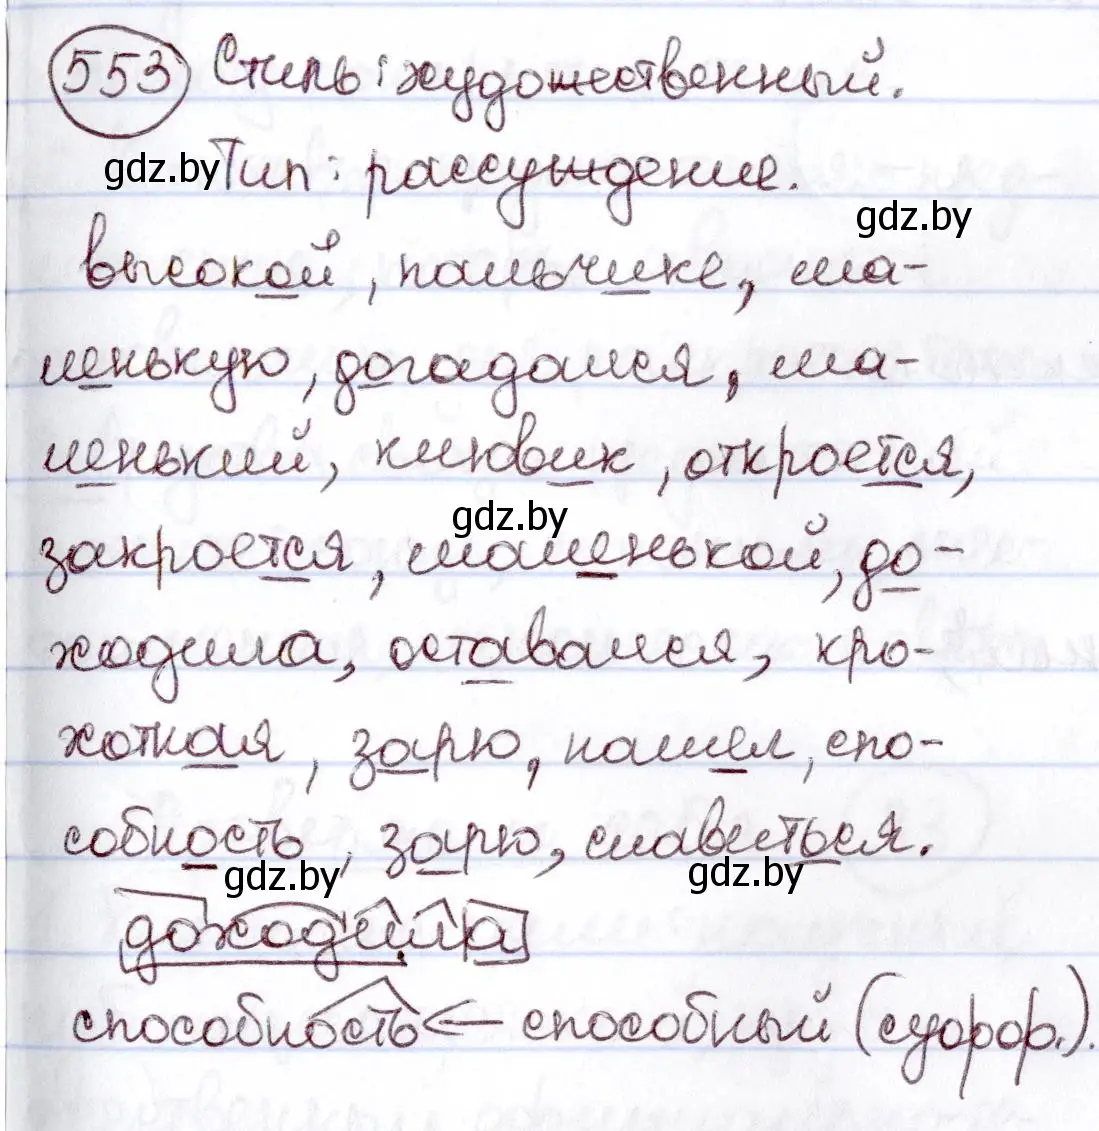 553 Стиль: художественный.
gdz.by Тип: рассуждение.
gdz.by
высокой, пальчике, ма-
ленькую, догадался, ма-
ленький, клювик, откроется,
gdz.by
закроется, маленькой, до-
ходила, оставался, кро-
хотная, зарю, нашел, спо-
собность, зарю, славиться.
gdz.by gdz.by
доходила
способность ← способный (суффикс.).